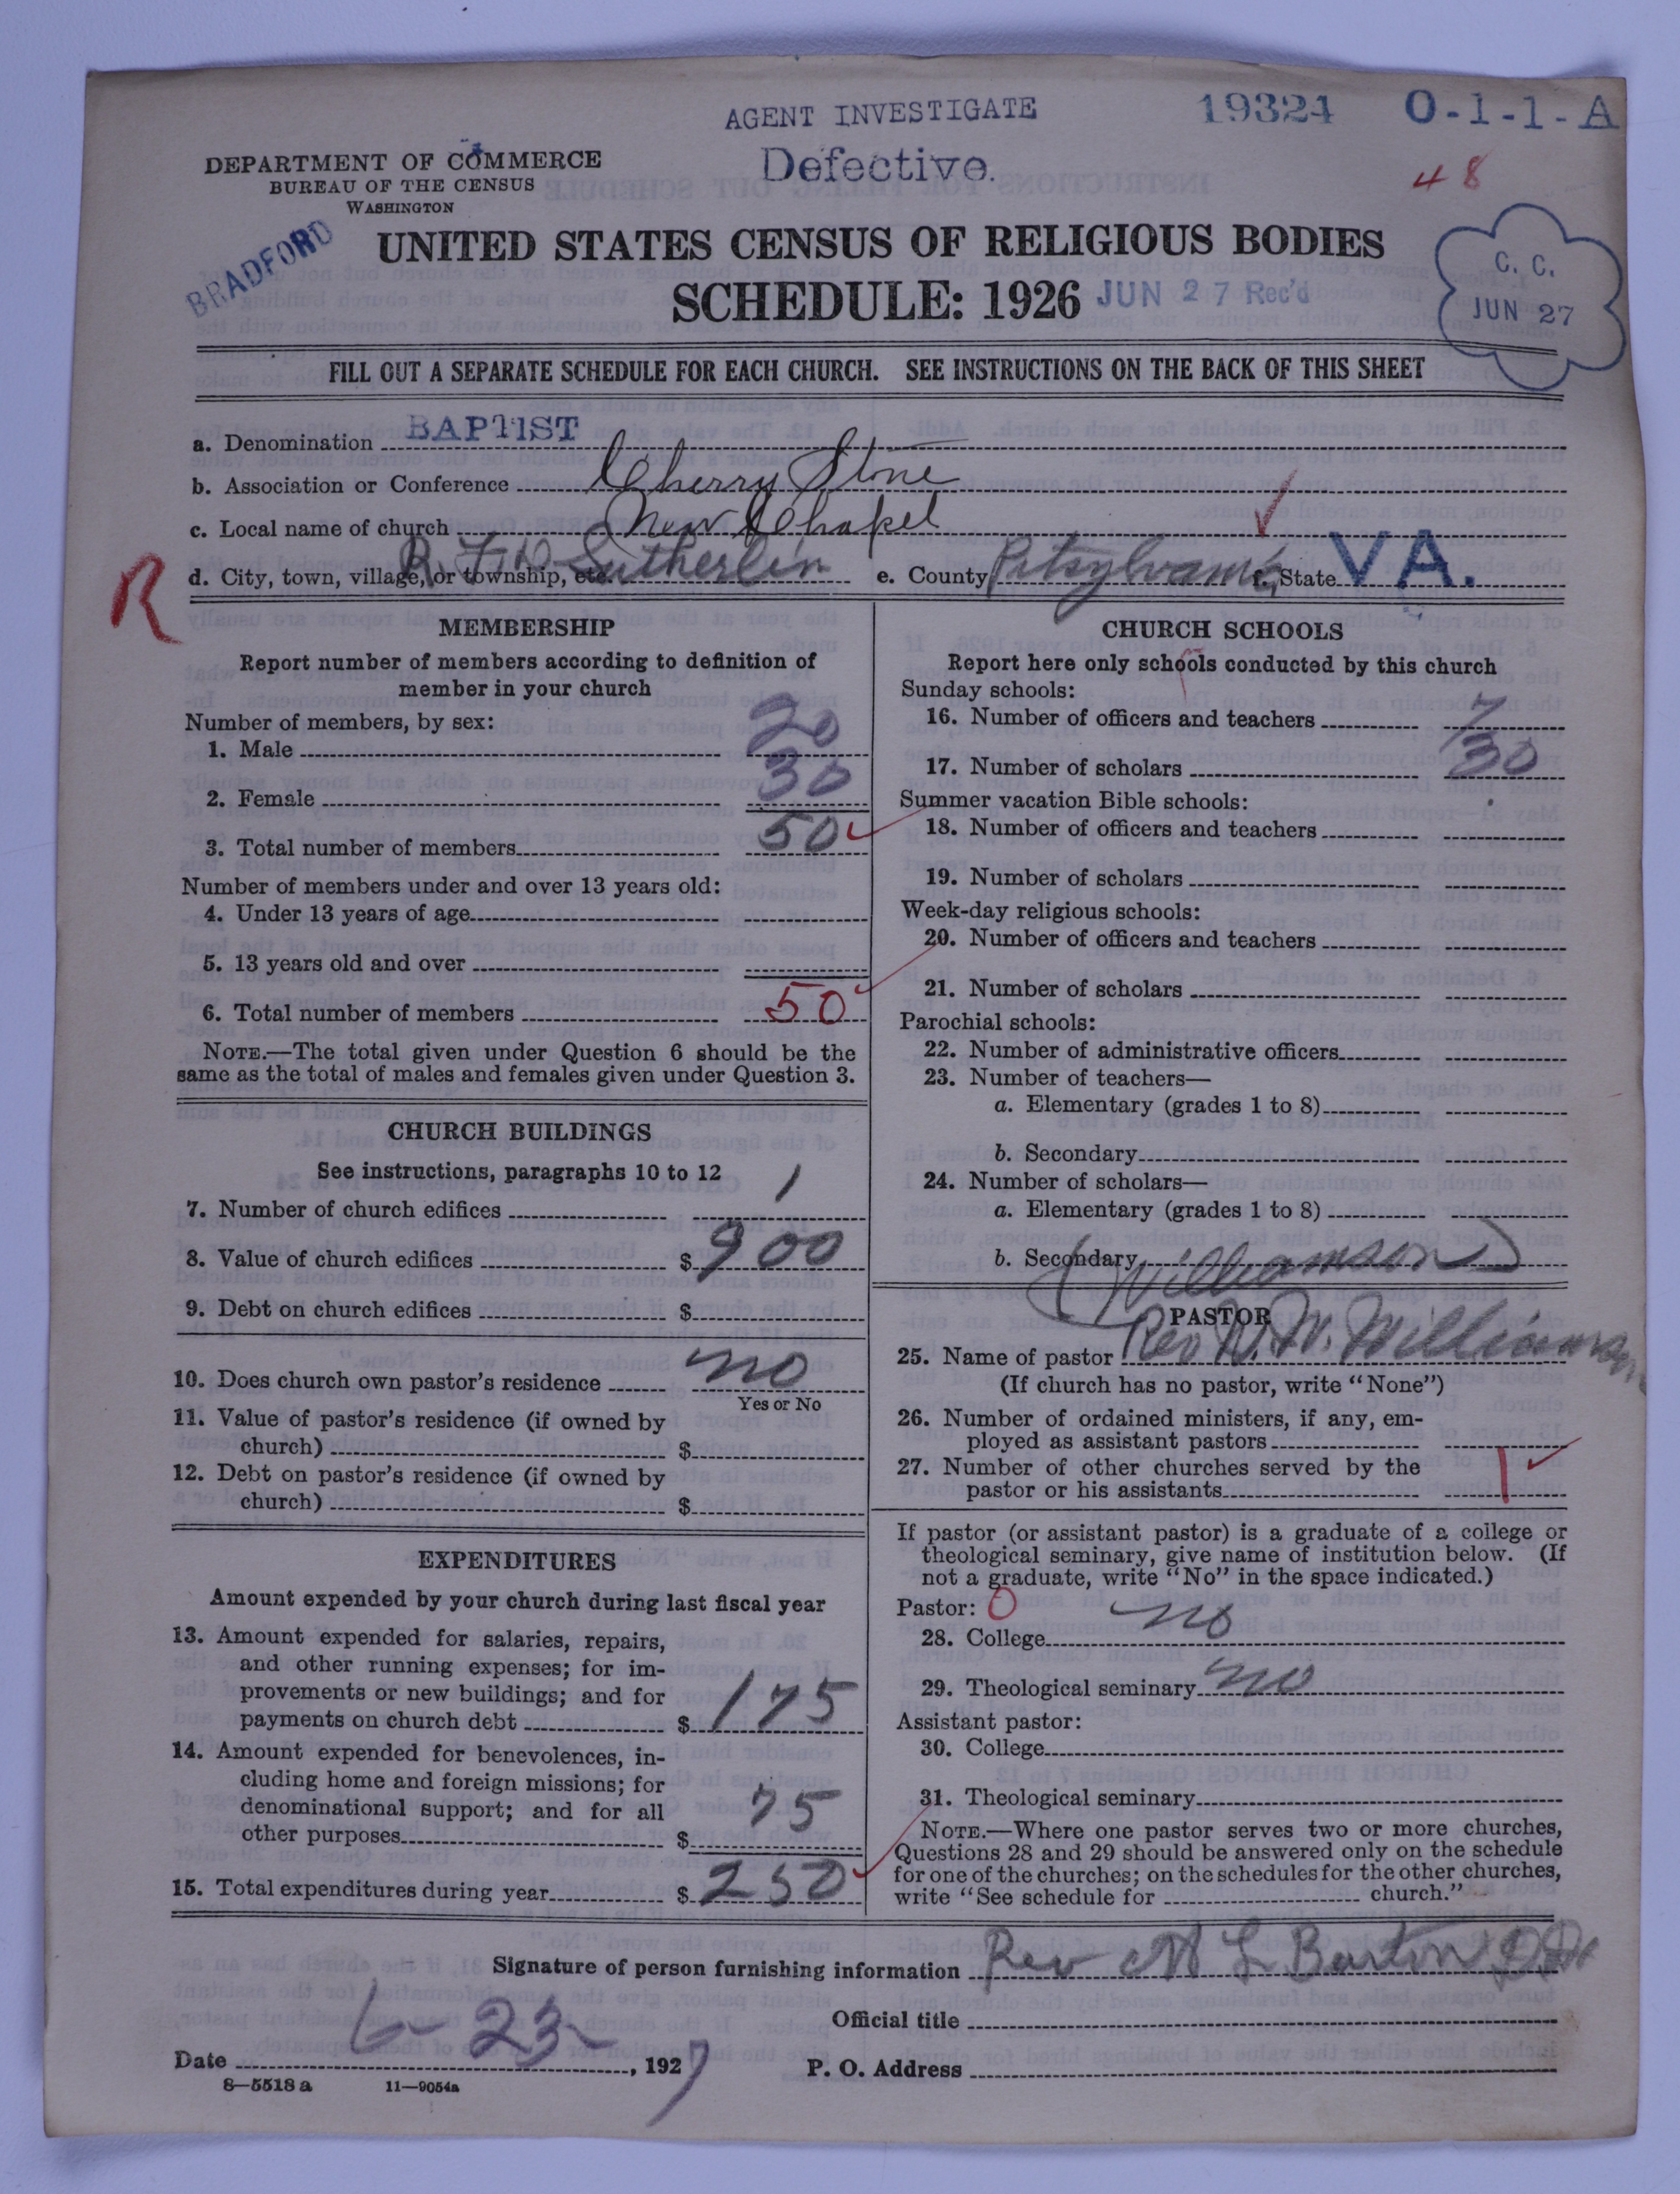 AGENT INVESTIGATE
19324 O-1-1-A
Defective.
48
DEPARTMENT OF COMMERCE
BUREAU OF THE CENSUS
WASHINGTON
BRADFORD
UNITED STATES CENSUS OF RELIGIOUS BODIES
SCHEDULE: 1926 JUN 27 Rec'd
C. C.
JUN 27
FILL OUT A SEPARATE SCHEDULE FOR EACH CHURCH. SEE INSTRUCTIONS ON THE BACK OF THIS SHEET
a. Denomination BAPTIST
b. Association or Conference Cherry Stone
c. Local name of church New Chapel
R d. City, town, village, or township, etc. R. F. D. Sutherlin e. County Pitsylvania f. State VA.
MEMBERSHIP
Report number of members according to definition of
member in your church
Number of members, by sex:
1. Male 20
2. Female 30
3. Total number of members 50
Number of members under and over 13 years old:
4. Under 13 years of age
5. 13 years old and over
6. Total number of members 50
NOTE.—The total given under Question 6 should be the
same as the total of males and females given under Question 3.
CHURCH BUILDINGS
See instructions, paragraphs 10 to 12
7. Number of church edifices 1
8. Value of church edifices $ 900
9. Debt on church edifices $
10. Does church own pastor's residence no
Yes or No
11. Value of pastor's residence (if owned by
church) $
12. Debt on pastor's residence (if owned by
church) $
EXPENDITURES
Amount expended by your church during last fiscal year
13. Amount expended for salaries, repairs,
and other running expenses; for im-
provements or new buildings; and for
payments on church debt $ 175
14. Amount expended for benevolences, in-
cluding home and foreign missions; for
denominational support; and for all
other purposes $ 75
15. Total expenditures during year $ 250
CHURCH SCHOOLS
Report here only schools conducted by this church
Sunday schools:
16. Number of officers and teachers 7
17. Number of scholars 30
Summer vacation Bible schools:
18. Number of officers and teachers
19. Number of scholars
Week-day religious schools:
20. Number of officers and teachers
21. Number of scholars
Parochial schools:
22. Number of administrative officers
23. Number of teachers—
a. Elementary (grades 1 to 8)
b. Secondary
24. Number of scholars—
a. Elementary (grades 1 to 8)
b. Secondary
(Williamson)
PASTOR
25. Name of pastor Rev W. Williamson
(If church has no pastor, write "None")
26. Number of ordained ministers, if any, em-
ployed as assistant pastors
27. Number of other churches served by the
pastor or his assistants 1
If pastor (or assistant pastor) is a graduate of a college or
theological seminary, give name of institution below. (If
not a graduate, write "No" in the space indicated.)
Pastor: 0
28. College no
29. Theological seminary no
Assistant pastor:
30. College
31. Theological seminary
NOTE.—Where one pastor serves two or more churches,
Questions 28 and 29 should be answered only on the schedule
for one of the churches; on the schedules for the other churches,
write "See schedule for church."
Signature of person furnishing information Rev L Barton
Official title
Date 6-23-, 1927 P. O. Address
8—5518 a 11—9054a